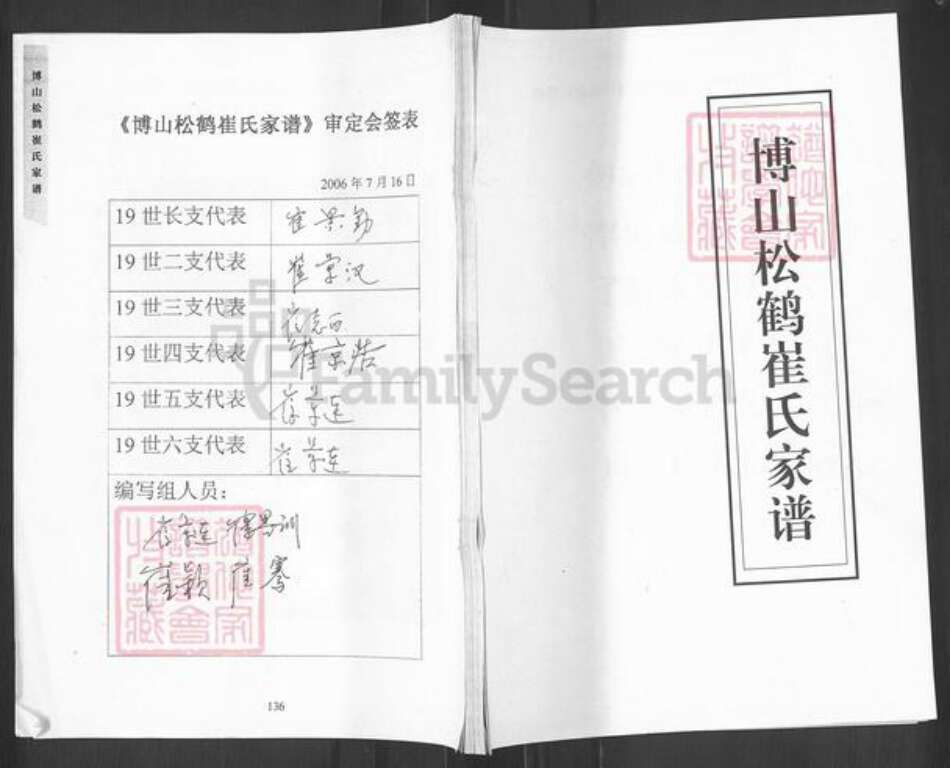 博山松鹤崔氏家谱
《博山松鹤崔氏家谱》审定会签表
2006年7月16日
19世长支代表 崔景勤
19世二支代表 崔
19世三支代表 崔
19世四支代表 崔京浩
19世五支代表 崔景连
19世六支代表 崔景连
编写组人员：
崔景连
崔颖 崔骞
136
博山松鹤崔氏家谱
FamilySearch